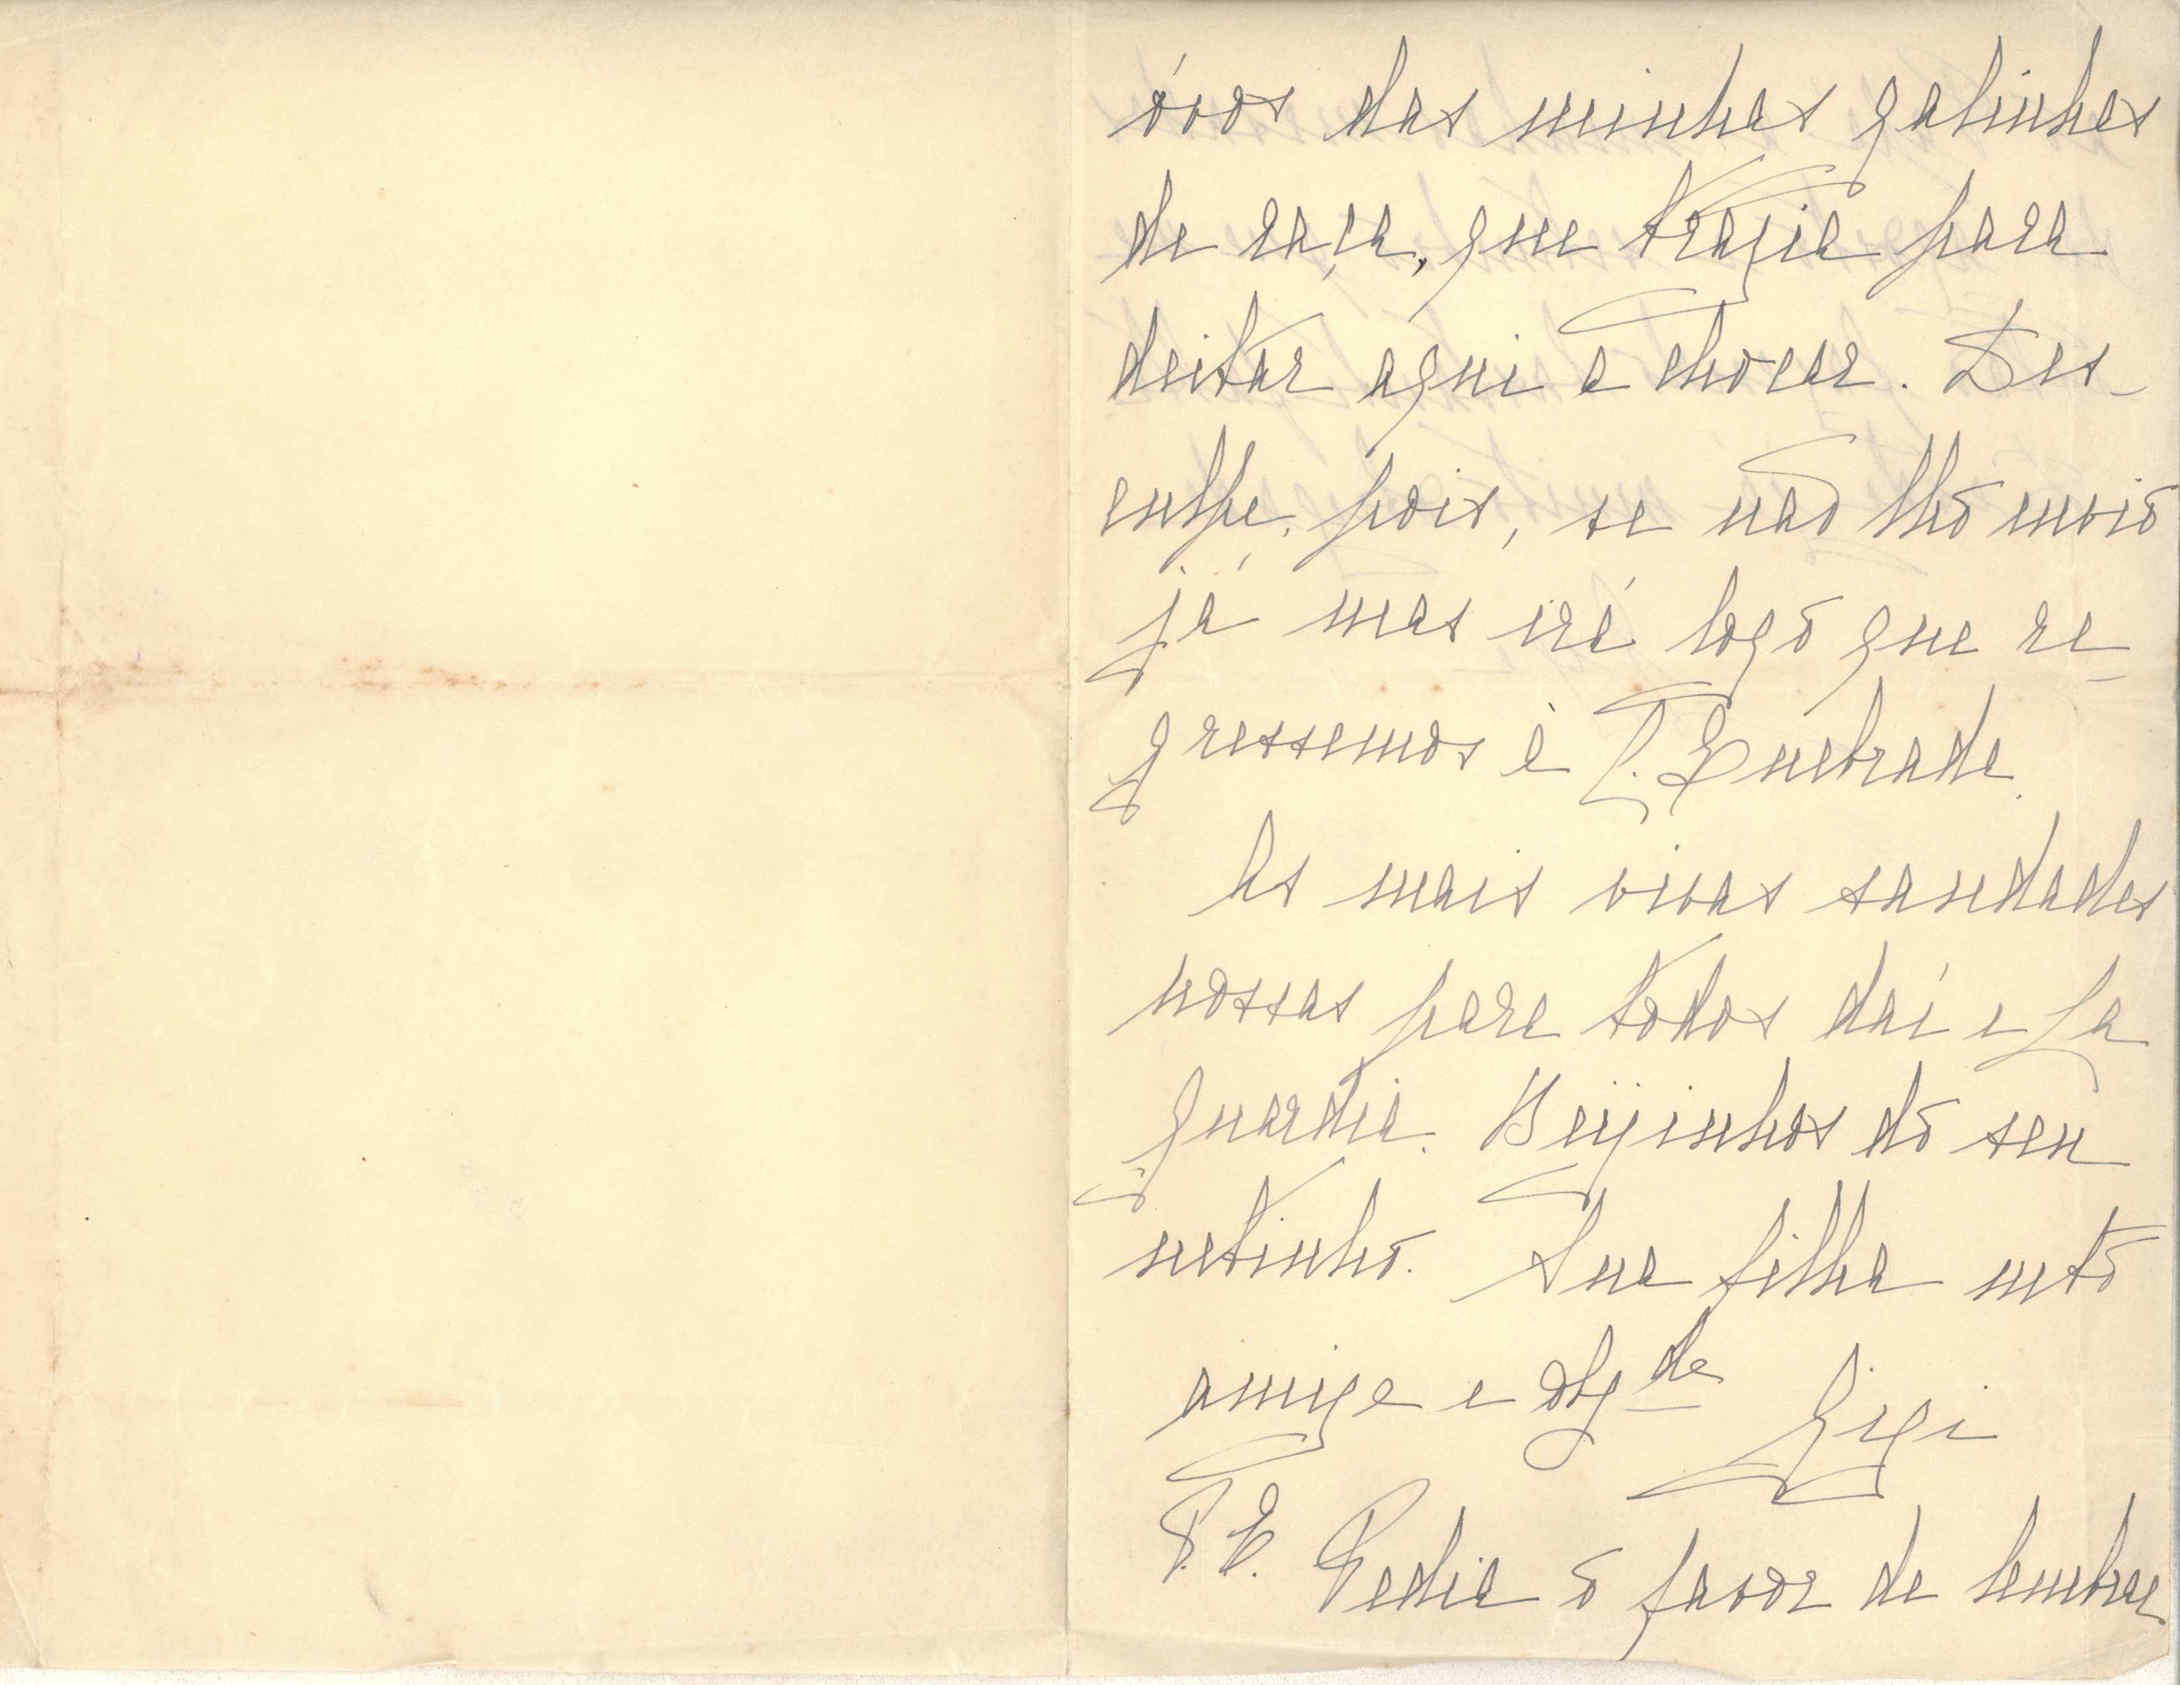 óvos das minhas galinhas
de raça, que trazia para
deitar aqui a chocar. Des-
culpe, pois, se não lho envio
já mas irá logo que re-
gressemos à P. Quebrada.
As mais vivas saudades
nossas para todos daí e La
Guardia. Beijinhos do seu
netinho. Sua filha mto
amiga e obgda Gigi
P.E. Pedia o favor de lembrar